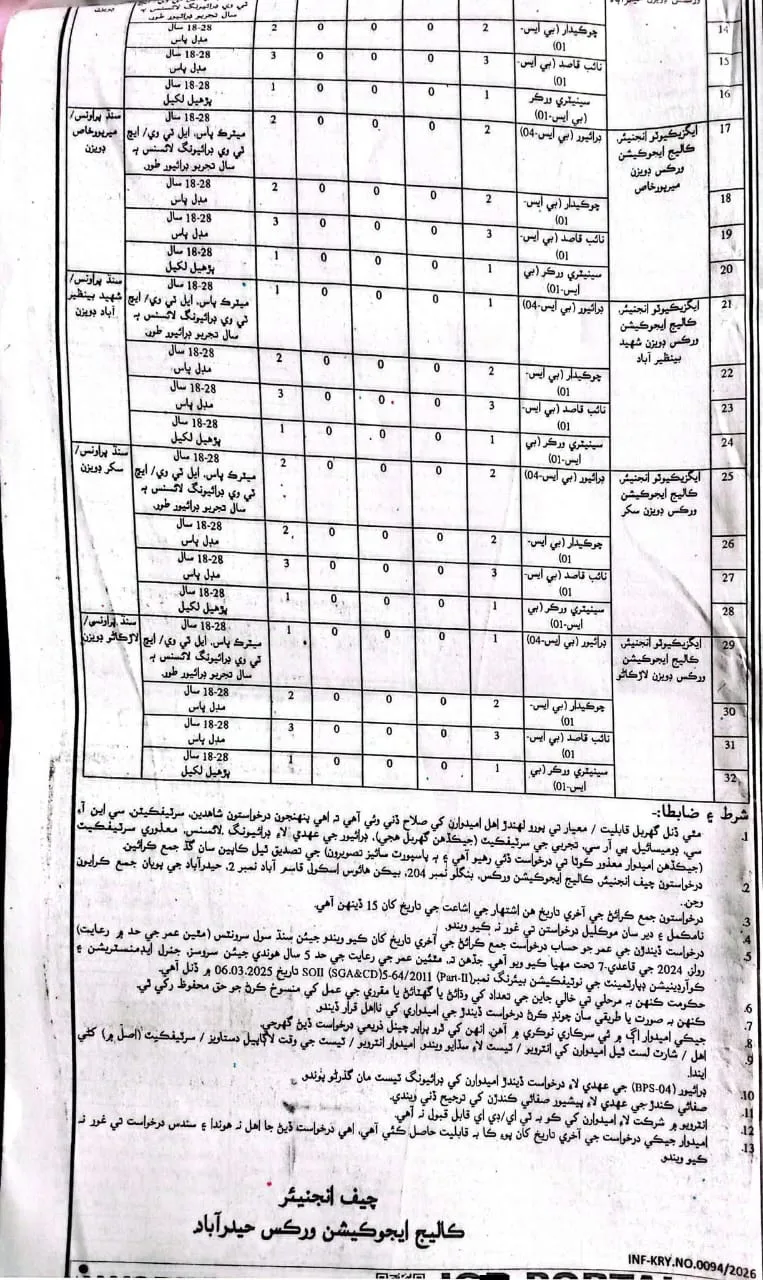 14 چوڪيدار (بي ايس-01) 2 0 0 0 2 18-28 سال مڊل پاس
15 نائب قاصد (بي ايس-01) 3 0 0 0 3 18-28 سال مڊل پاس
16 سينيٽري ورڪر (بي ايس-01) 1 0 0 0 1 18-28 سال پڙهيل لکيل
17 ايگزيڪيوٽو انجنيئر، ڪاليج ايجوڪيشن ورڪس ڊويزن ميرپورخاص ڊرائيور (بي ايس-04) 2 0 0 0 2 18-28 سال ميٽرڪ پاس، ايل ٽي وي/ ايڇ ٽي وي ڊرائيونگ لائسنس ۽ سال تجربو ڊرائيور طور. سنڌ پراونس/ ميرپورخاص ڊويزن
18 چوڪيدار (بي ايس-01) 2 0 0 0 2 18-28 سال مڊل پاس
19 نائب قاصد (بي ايس-01) 3 0 0 0 3 18-28 سال مڊل پاس
20 سينيٽري ورڪر (بي ايس-01) 1 0 0 0 1 18-28 سال پڙهيل لکيل
21 ايگزيڪيوٽو انجنيئر، ڪاليج ايجوڪيشن ورڪس ڊويزن شهيد بينظير آباد ڊرائيور (بي ايس-04) 1 0 0 0 1 18-28 سال ميٽرڪ پاس، ايل ٽي وي/ ايڇ ٽي وي ڊرائيونگ لائسنس ۽ سال تجربو ڊرائيور طور. سنڌ پراونس/ شهيد بينظير آباد ڊويزن
22 چوڪيدار (بي ايس-01) 2 0 0 0 2 18-28 سال مڊل پاس
23 نائب قاصد (بي ايس-01) 3 0 0 0 3 18-28 سال مڊل پاس
24 سينيٽري ورڪر (بي ايس-01) 1 0 0 0 1 18-28 سال پڙهيل لکيل
25 ايگزيڪيوٽو انجنيئر، ڪاليج ايجوڪيشن ورڪس ڊويزن سکر ڊرائيور (بي ايس-04) 2 0 0 0 2 18-28 سال ميٽرڪ پاس، ايل ٽي وي/ ايڇ ٽي وي ڊرائيونگ لائسنس ۽ سال تجربو ڊرائيور طور. سنڌ پراونس/ سکر ڊويزن
26 چوڪيدار (بي ايس-01) 2 0 0 0 2 18-28 سال مڊل پاس
27 نائب قاصد (بي ايس-01) 3 0 0 0 3 18-28 سال مڊل پاس
28 سينيٽري ورڪر (بي ايس-01) 1 0 0 0 1 18-28 سال پڙهيل لکيل
29 ايگزيڪيوٽو انجنيئر، ڪاليج ايجوڪيشن ورڪس ڊويزن لاڙڪاڻو ڊرائيور (بي ايس-04) 1 0 0 0 1 18-28 سال ميٽرڪ پاس، ايل ٽي وي/ ايڇ ٽي وي ڊرائيونگ لائسنس ۽ سال تجربو ڊرائيور طور. سنڌ پراونس/ لاڙڪاڻو ڊويزن
30 چوڪيدار (بي ايس-01) 2 0 0 0 2 18-28 سال مڊل پاس
31 نائب قاصد (بي ايس-01) 3 0 0 0 3 18-28 سال مڊل پاس
32 سينيٽري ورڪر (بي ايس-01) 1 0 0 0 1 18-28 سال پڙهيل لکيل
شرط ۽ ضابطا:-
1. مٿي ڏنل گهربل قابليت / معيار تي پورو لهندڙ اهل اميدوارن کي صلاح ڏني وئي آهي ته اهي پنهنجون درخواستون شاهدين، سرٽيفڪيٽن، سي اين آءِ
سي، ڊوميسائيل، پي آر سي، تجربي جي سرٽيفڪيٽ (جيڪڏهن گهربل هجي)، ڊرائيور جي عهدي لاءِ ڊرائيونگ لائسنس، معذوري سرٽيفڪيٽ
(جيڪڏهن اميدوار معذور ڪوٽا تي درخواست ڏئي رهيو آهي ۽ ٻه پاسپورٽ سائيز تصويرون) جي تصديق ٿيل ڪاپين سان گڏ جمع ڪرائين.
2. درخواستون چيف انجنيئر، ڪاليج ايجوڪيشن ورڪس، بنگلو نمبر 204، بيڪن هائوس اسڪول قاسم آباد نمبر 2، حيدرآباد جي پويان جمع ڪرايون
وڃن.
3. درخواستون جمع ڪرائڻ جي آخري تاريخ هن اشتهار جي اشاعت جي تاريخ کان 15 ڏينهن آهي.
4. نامڪمل ۽ دير سان موڪليل درخواستن تي غور نه ڪيو ويندو.
5. درخواست ڏيندڙن جي عمر جو حساب درخواست جمع ڪرائڻ جي آخري تاريخ کان ڪيو ويندو جيئن سنڌ سول سرونٽس (مٿين عمر جي حد ۾ رعايت)
رولز، 2024 جي قاعدي-7 تحت مهيا ڪيو ويو آهي. جڏهن ته، مٿئين عمر جي رعايت جي حد 5 سال هوندي جيئن سروسز، جنرل ايڊمنسٽريشن ۽
ڪوآرڊينيشن ڊپارٽمينٽ جي نوٽيفڪيشن بيئرنگ نمبر SOII (SGA&CD)5-64/2011 (Part-II) تاريخ 06.03.2025 ۾ ڏنل آهي.
6. حڪومت ڪنهن به مرحلي تي خالي جاين جي تعداد کي وڌائڻ يا گهٽائڻ يا مقرري جي عمل کي منسوخ ڪرڻ جو حق محفوظ رکي ٿي.
7. ڪنهن به صورت يا طريقي سان چونڊ ڪرڻ درخواست ڏيندڙ جي اميدواري کي نااهل قرار ڏيندو.
8. جيڪي اميدوار اڳ ۾ ئي سرڪاري نوڪري ۾ آهن، انهن کي ٿرو پراپر چينل ذريعي درخواست ڏيڻ گهرجي.
9. اهل / شارٽ لسٽ ٿيل اميدوارن کي انٽرويو / ٽيسٽ لاءِ سڏايو ويندو. اميدوار انٽرويو / ٽيسٽ جي وقت لاڳاپيل دستاويز / سرٽيفڪيٽ (اصل ۾) کڻي
ايندا.
10. ڊرائيور (BPS-04) جي عهدي لاءِ درخواست ڏيندڙ اميدوارن کي ڊرائيونگ ٽيسٽ مان گذرڻو پوندو.
11. صفائي ڪندڙ جي عهدي لاءِ پيشيور صفائي ڪندڙن کي ترجيح ڏني ويندي.
12. انٽرويو ۾ شرڪت لاءِ اميدوارن کي ڪو به ٽي اي/ڊي اي قابل قبول نه آهي.
13. اميدوار جيڪي درخواست جي آخري تاريخ کان پوءِ ڪا به قابليت حاصل ڪئي آهي، اهي درخواست ڏيڻ جا اهل نه هوندا ۽ سندس درخواست تي غور نه
ڪيو ويندو.
چيف انجنيئر
ڪاليج ايجوڪيشن ورڪس حيدرآباد
INF-KRY.NO.0094/2026